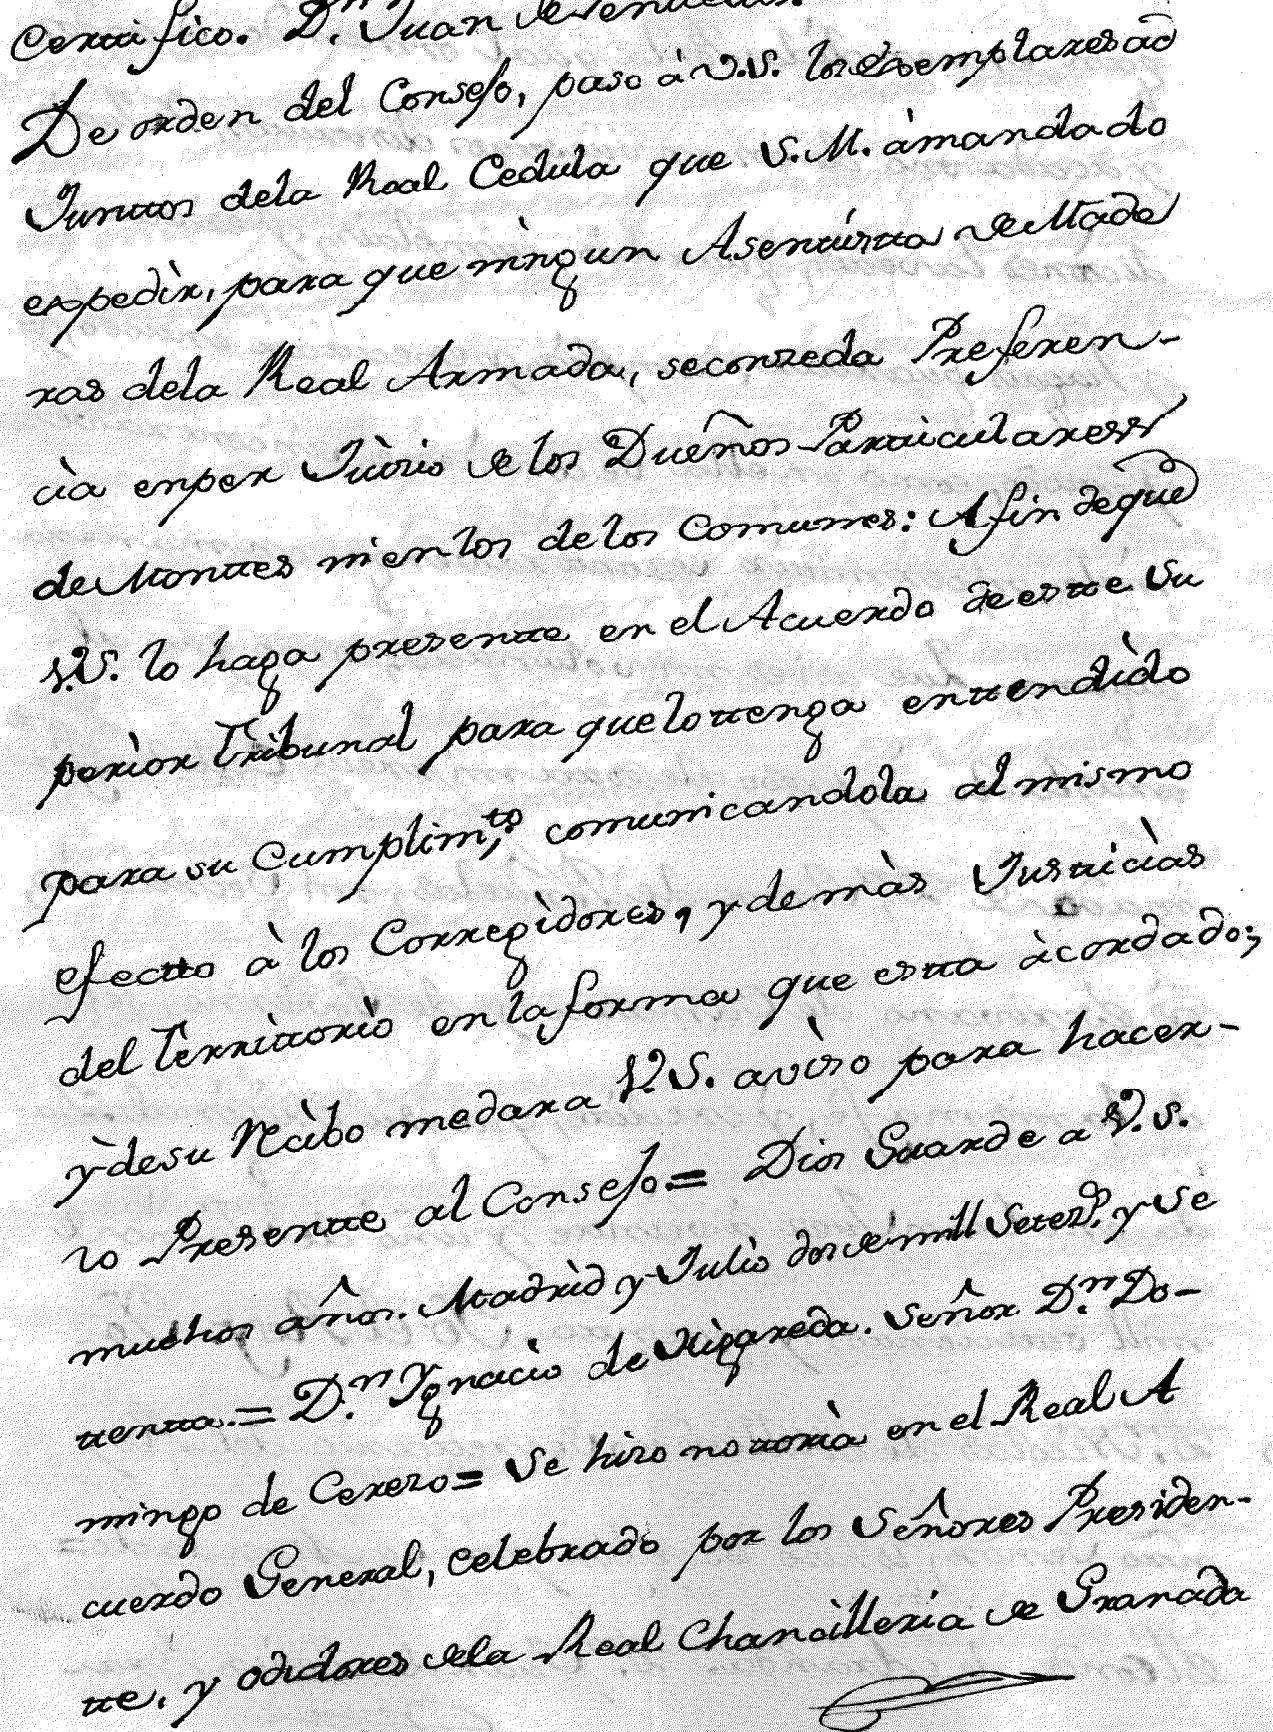 Certifico. D.n Juan de Peñuelas.
De orden del Consejo, paso à V.S. los exemplares ad
Junttos dela Real Cedula que S.M. àmandado
expedir, para que ningun Asentistta de Made
ras dela Real Armada, seconzeda Preferen-
cia enper Juicio de los Dueños Partticulares
de Monttes nien los de los Comunes: A fin de que
V.S. lo haga presentte en el Acuerdo de estte Su
perior Tribunal para quelottenga enttendido
para su Cumplim.to, comunicandola al mismo
efectto à los Corregidores, y demàs Justicias
del Territtorio en la forma que estta àcordado;
y de su Recibo medara V.S. aviso para hacer-
lo Presentte al Consejo.= Dios Guarde a V.S.
muchos años. Madrid y Julio dos de mill Setez.s y Se
ttentta.= D.n Ygnacio de Higareda. Señor D.n Do-
mingo de Cerezo= Se hizo nottoria en el Real A
cuerdo General, celebrado por los Señores Presiden-
tte, y odidores dela Real Chancilleria de Granada